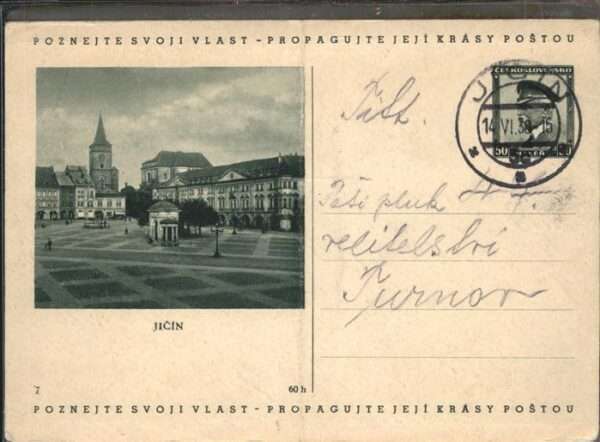 POZNEJTE SVOJI VLAST - PROPAGUJTE JEJÍ KRÁSY POŠTOU
ČESKOSLOVENSKO
JIČÍN
14.VI.38-15
50
50
Pěší pluk
velitelství
Turnov
JIČÍN
7
60 h
POZNEJTE SVOJI VLAST - PROPAGUJTE JEJÍ KRÁSY POŠTOU